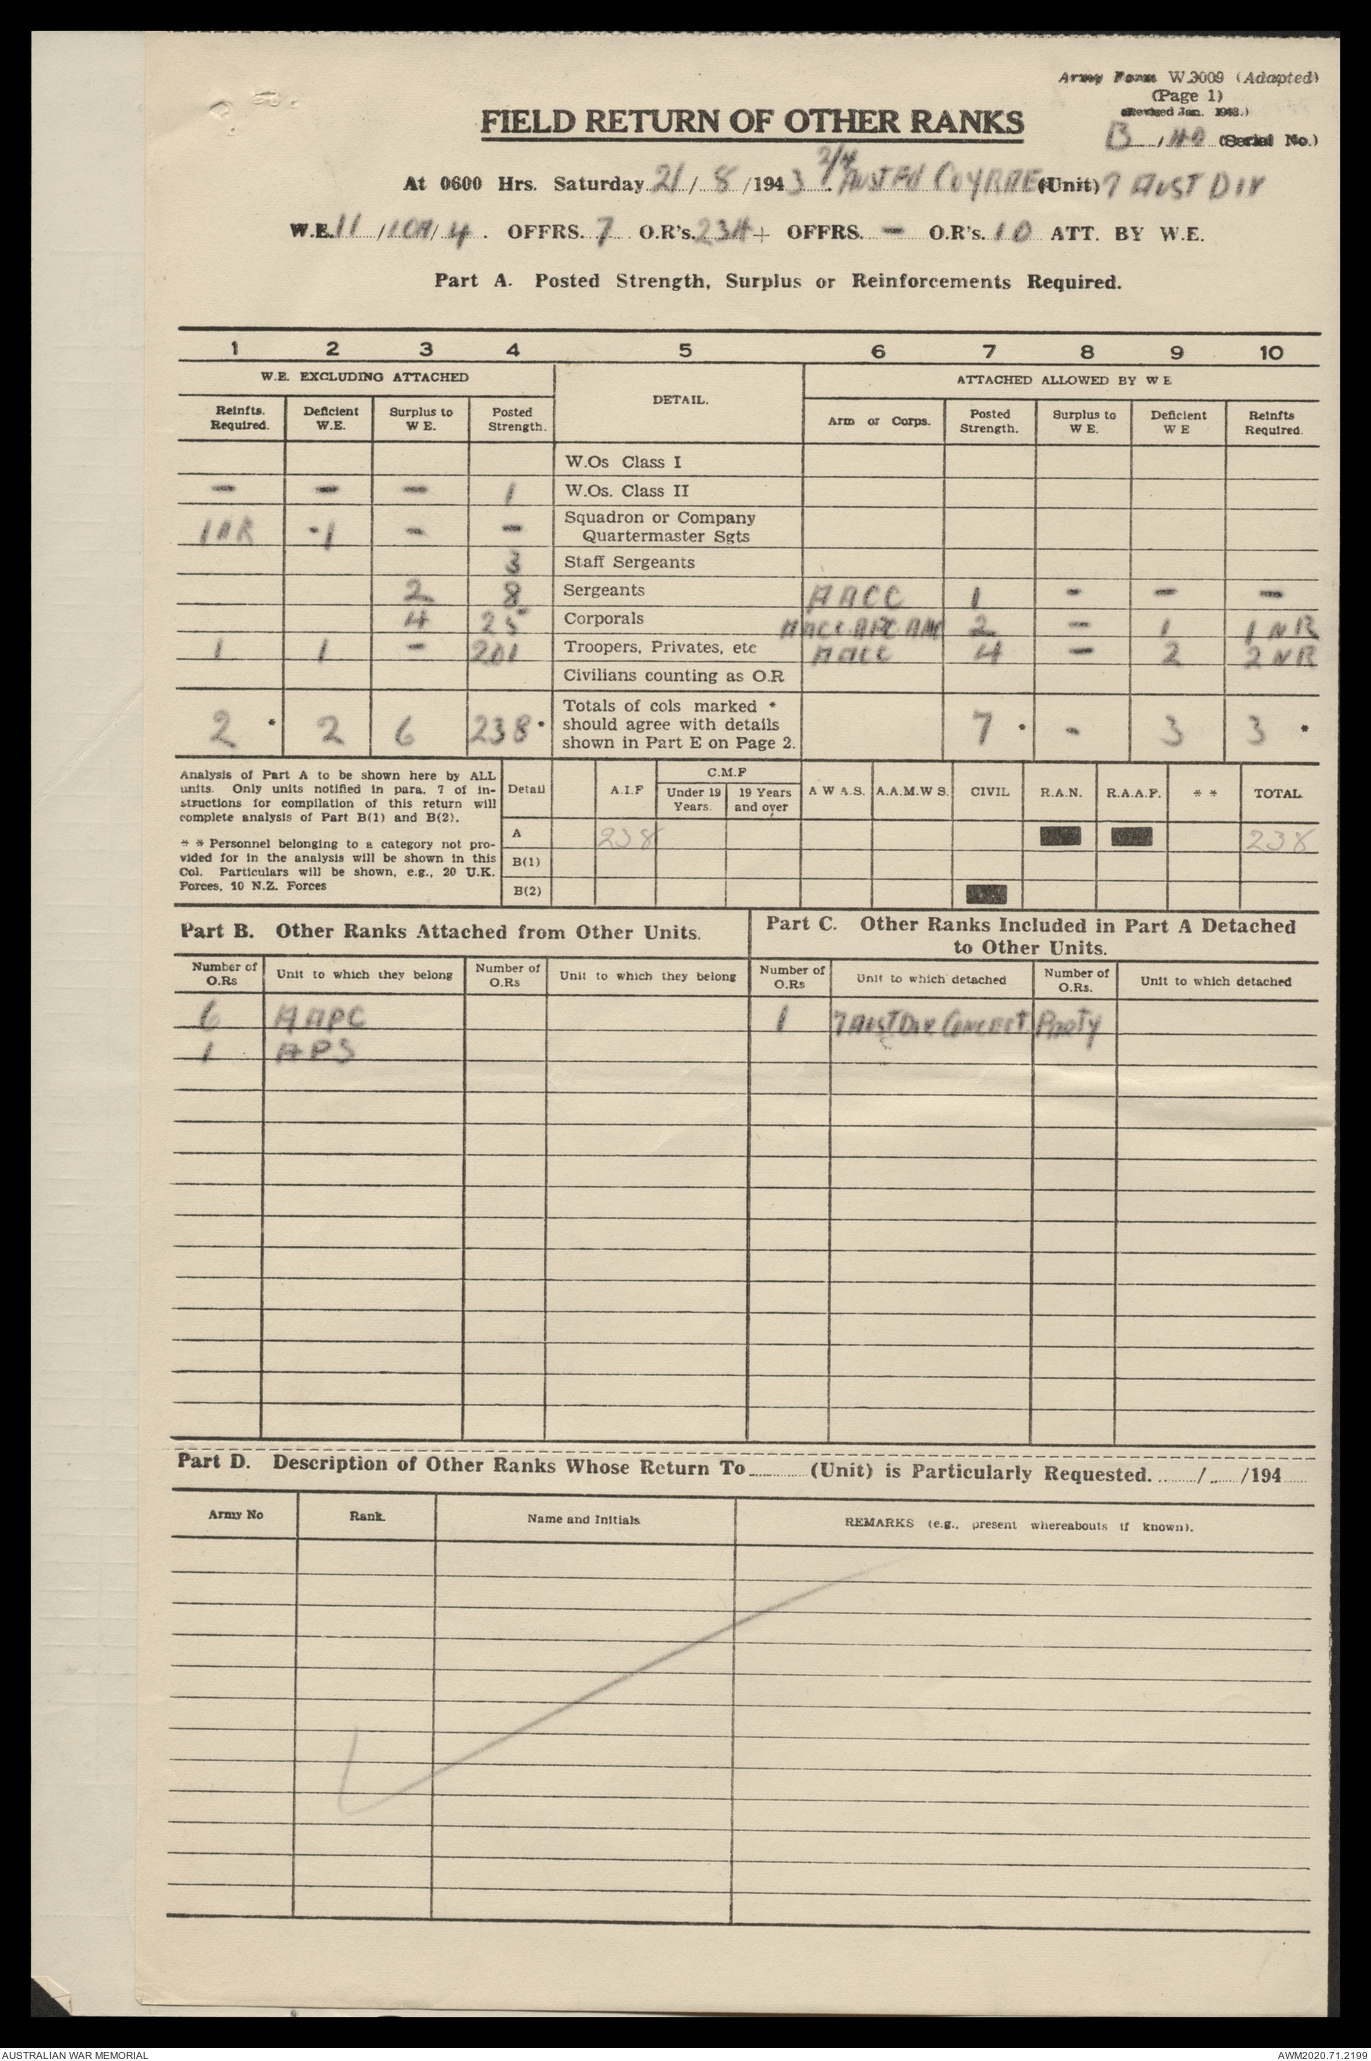 Army Form W.3009 (Adapted)
(Page 1)
(Revised Jan. 1943.)
B /40 (Serial No.)
FIELD RETURN OF OTHER RANKS
At 0600 Hrs. Saturday 21/ 8 /1943 2/4 AUST FD COY RAE (Unit) 7 AUST DIV
W.E. 11 /10A/ 4 . OFFRS. 7 O.R's. 234 + OFFRS. — O.R's. 10 ATT. BY W.E.
Part A. Posted Strength, Surplus or Reinforcements Required.
1 2 3 4 5 6 7 8 9 10
W.E. EXCLUDING ATTACHED DETAIL. ATTACHED ALLOWED BY W E
Reinfts. Required. Deficient W.E. Surplus to W E. Posted Strength. Arm or Corps. Posted Strength. Surplus to W E. Deficient W E Reinfts Required.
W.Os Class I
— — — 1 W.Os. Class II
1 AR -1 — — Squadron or Company Quartermaster Sgts
3 Staff Sergeants
2 8 Sergeants AACC 1 — — —
4 25 Corporals AACC 2 — 1 1 NR
1 1 — 201 Troopers, Privates, etc AACC 4 — 2 2 NR
Civilians counting as O.R
2 * 2 6 238 * Totals of cols marked * should agree with details shown in Part E on Page 2. 7 * - 3 3 *
Analysis of Part A to be shown here by ALL
units. Only units notified in para. 7 of in-
structions for compilation of this return will
complete analysis of Part B(1) and B(2).
* * Personnel belonging to a category not pro-
vided for in the analysis will be shown in this
Col. Particulars will be shown, e.g., 20 U.K.
Forces, 10 N.Z. Forces
Detail A.I.F C.M.F Under 19 Years. 19 Years and over A W A.S. A.A.M.W S. CIVIL R.A.N. R.A.A.F. * * TOTAL
A 238 238
B(1)
B(2)
Part B. Other Ranks Attached from Other Units.
Part C. Other Ranks Included in Part A Detached
to Other Units.
Number of O.Rs Unit to which they belong Number of O.Rs Unit to which they belong Number of O.Rs Unit to which detached Number of O.Rs. Unit to which detached
6 AAPC 1 7 AUST DIV CONCERT PARTY
1 APS
Part D. Description of Other Ranks Whose Return To ........ (Unit) is Particularly Requested. ....../...... /194
Army No Rank. Name and Initials REMARKS (e.g., present whereabouts if known).
AUSTRALIAN WAR MEMORIAL
AWM2020.71.2199